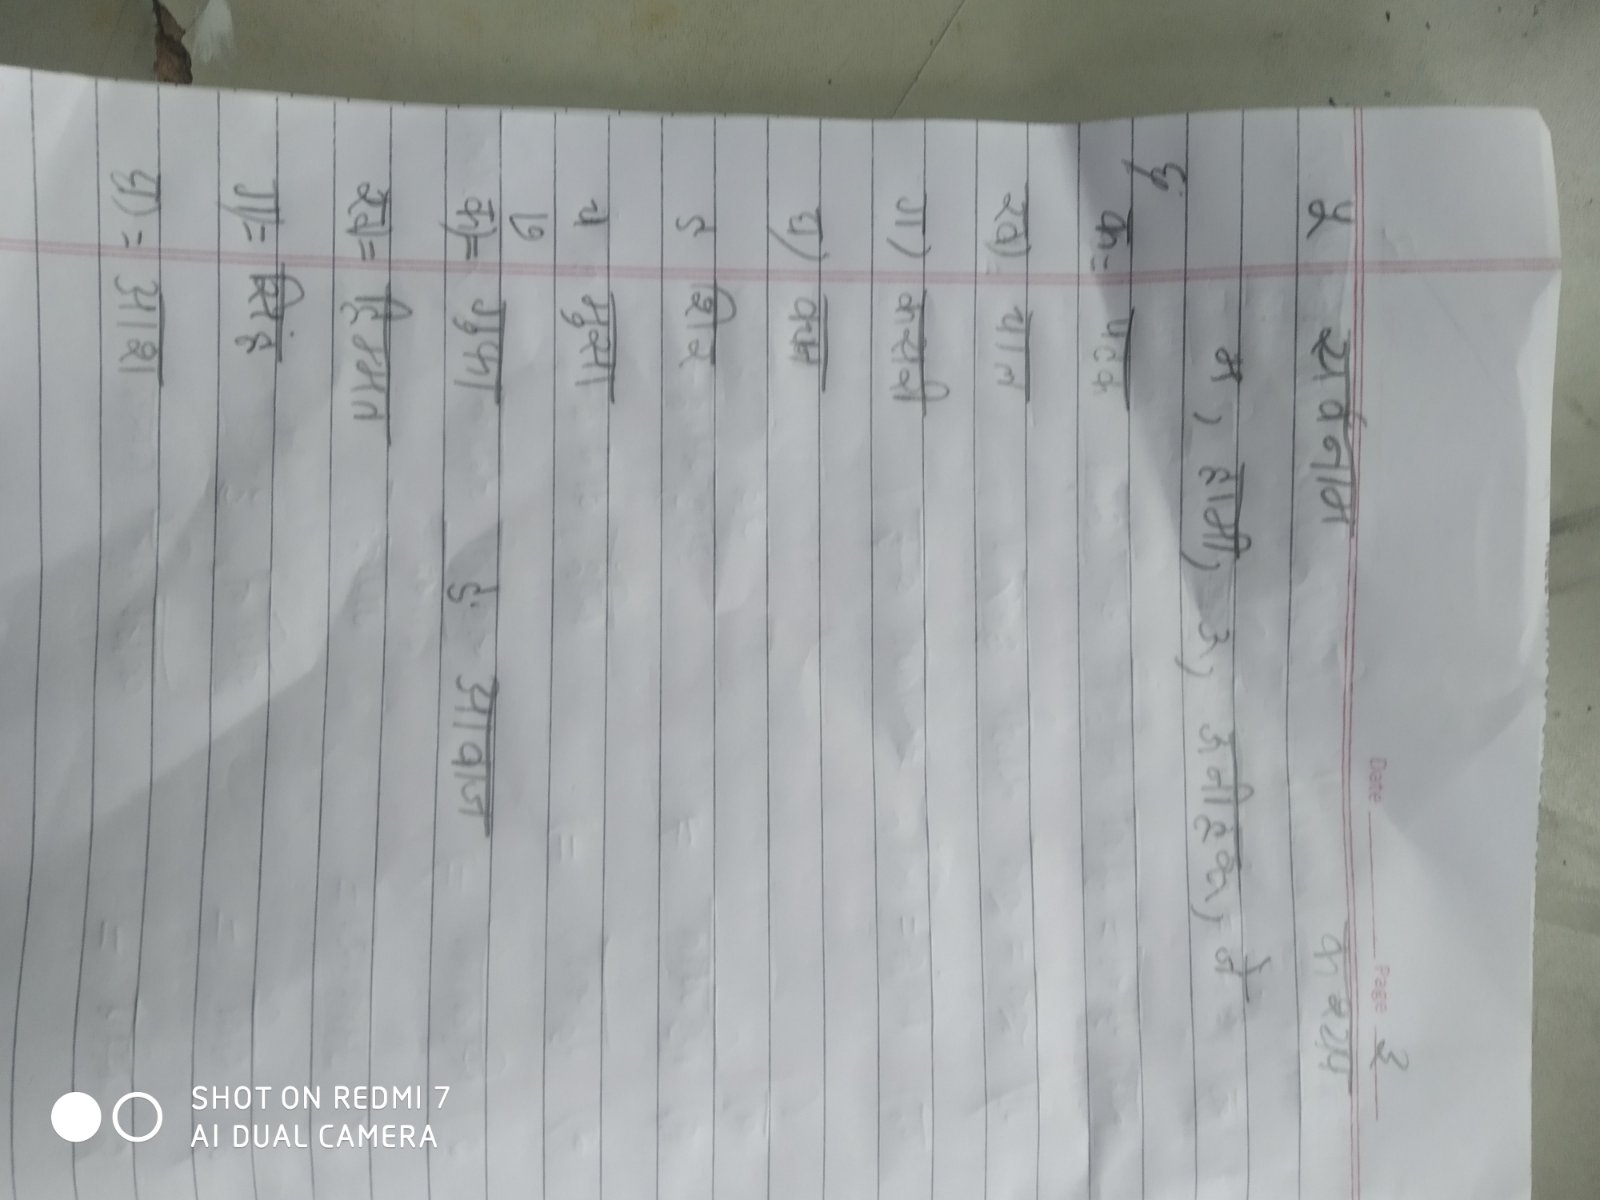 Date Page ३
५ सर्वनाम करयम
म, हामी, ऊ, उनीहरू, जे
६
क= पटक
ख)= चाल
ग)
घ)
ङ शिर
च भुसा
७
क)= गुफा ङ= आवाज
ख)= हिम्मत
ग)= सिंह
घ)= आश
SHOT ON REDMI 7
AI DUAL CAMERA